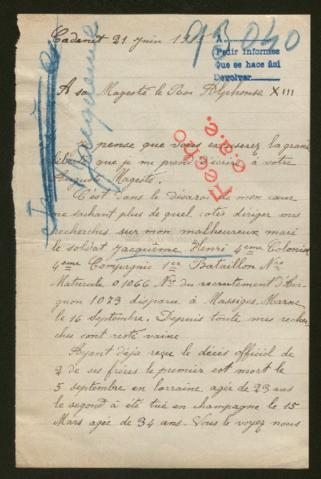 Cadenet 21 juin 1915
93040
Pedir informes
que se hace así
Devolver
A sa Magesté le Roi Alphonse XIII
Jacquème
Je pense que vous excuserez la grande
liberté que je me prend d'écrire à votre
Auguste Magesté.
C'est dans le désaroi de mon cœur
ne sachant plus de quel cotés diriger mes
recherches sur mon malheureux mari
le soldat Jacquème Henri 4eme Colonial
4eme Compagnie 1er Bataillon No
Matricule 01066 No du recrutement d'Avi-
gnon 1073 disparu à Massiges Marne
le 16 Septembre. Depuis toute mes recher
ches sont resté vaine
Ayant déja reçu le décès officiel de
2 de ses frères le premier est mort le
5 septembre en lorraine agée de 23 ans
le segond à été tué en champagne le 15
Mars agée de 34 ans. Vous le voyez nous